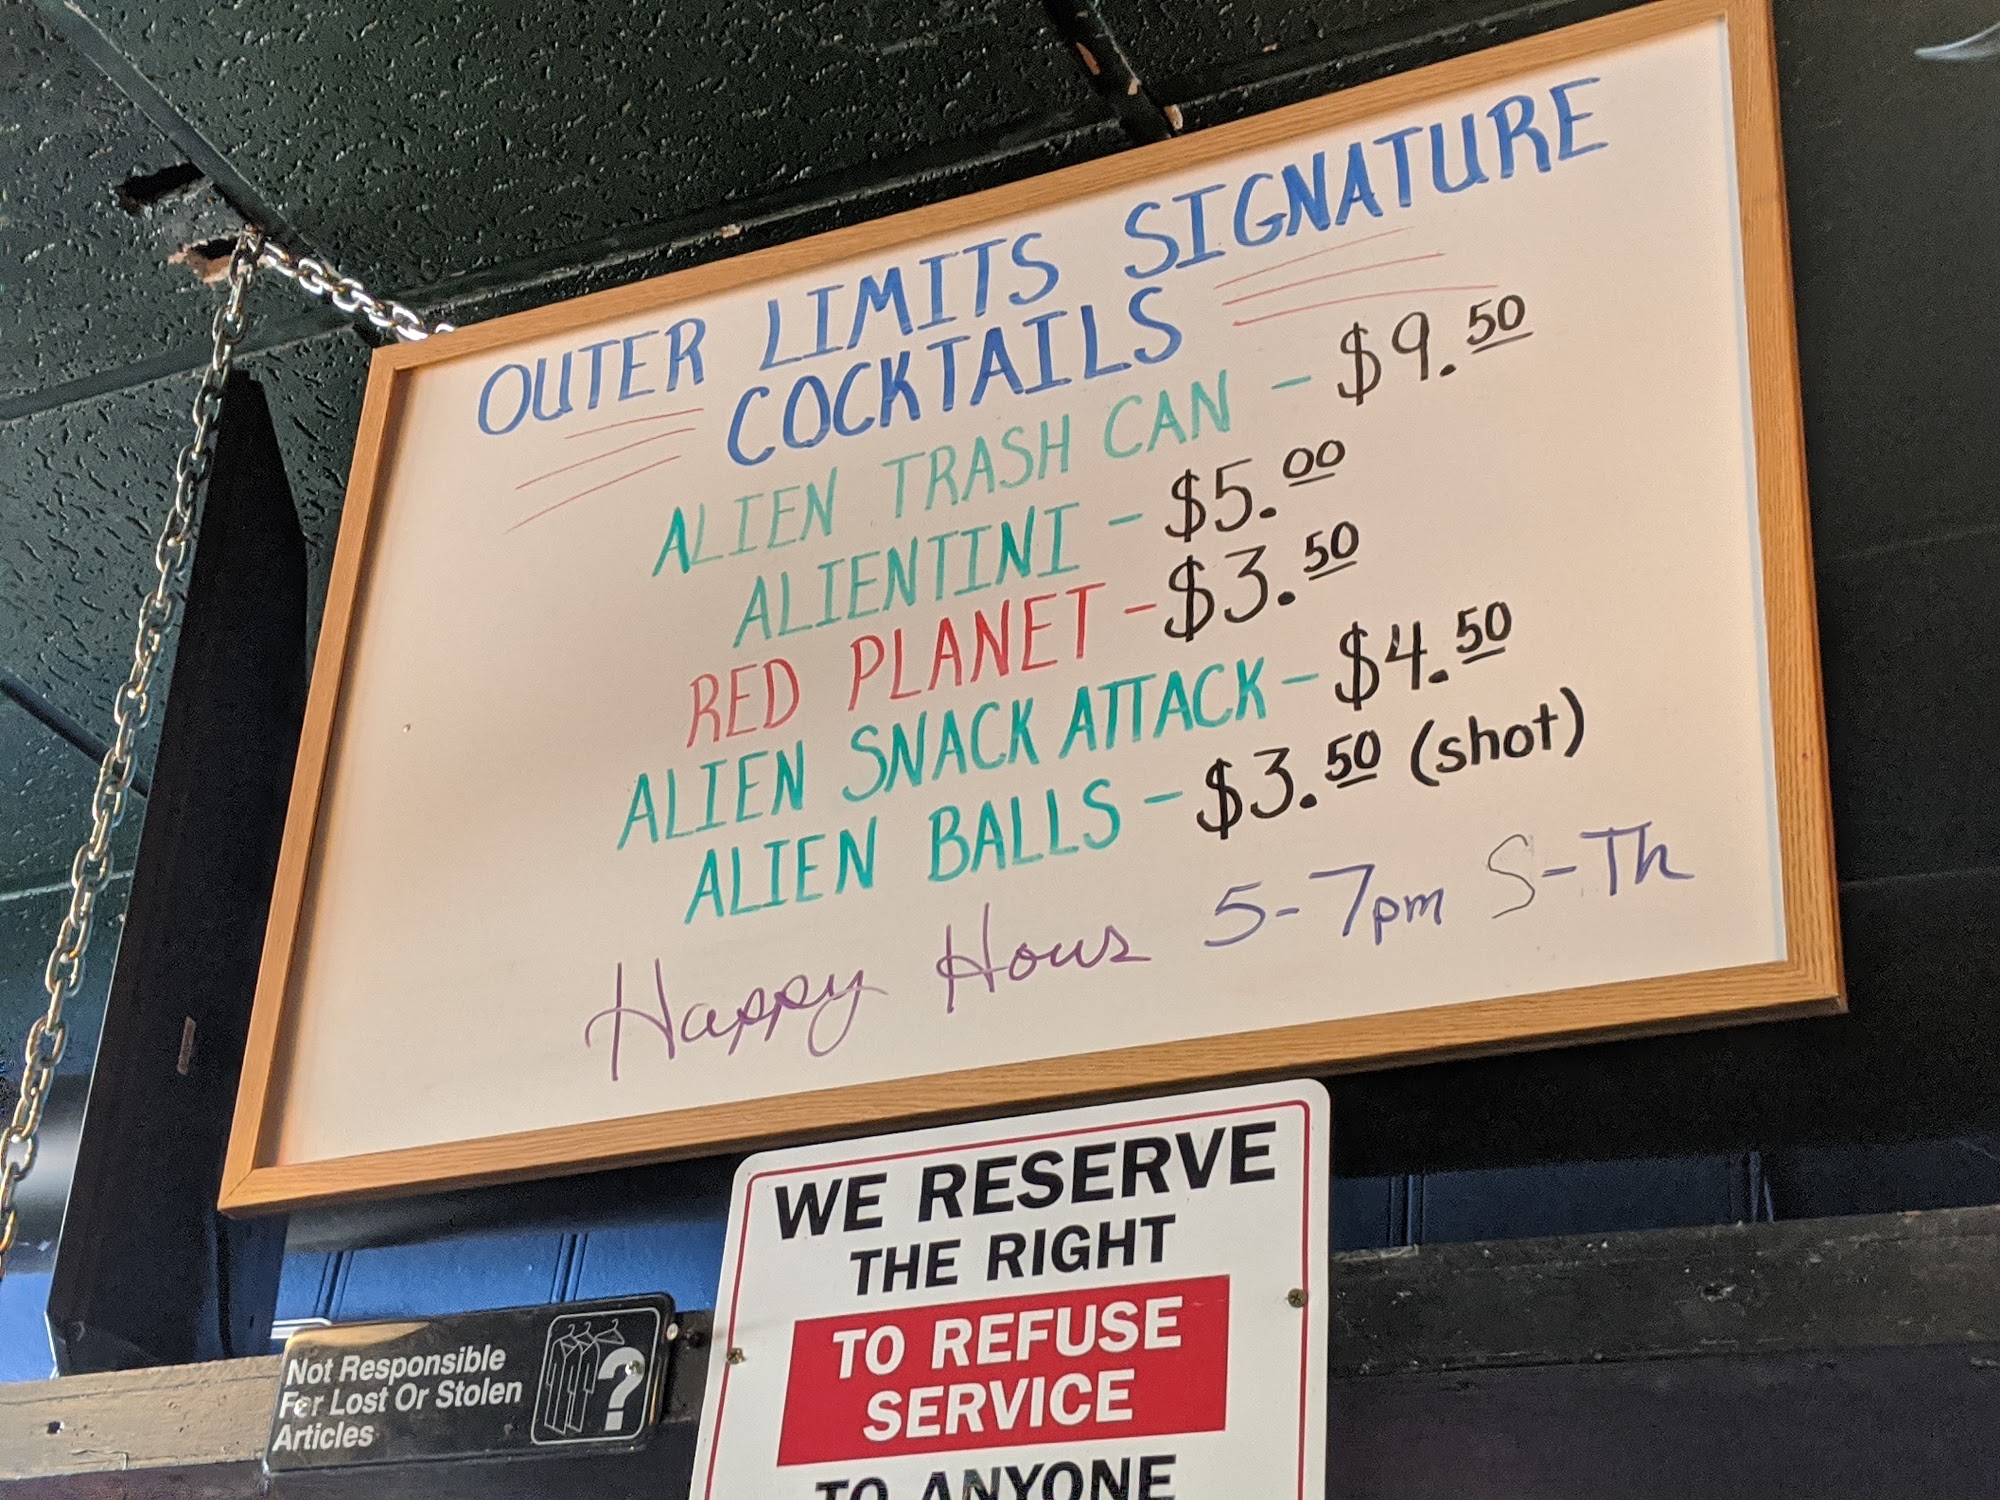 OUTER LIMITS SIGNATURE
COCKTAILS
ALIEN TRASH CAN - $9.50
ALIENTINI - $5.00
RED PLANET - $3.50
ALIEN SNACK ATTACK - $4.50
ALIEN BALLS - $3.50 (shot)
Happy Hour 5-7pm S-Th
WE RESERVE
THE RIGHT
TO REFUSE
SERVICE
TO ANYONE
Not Responsible
For Lost Or Stolen
Articles
?